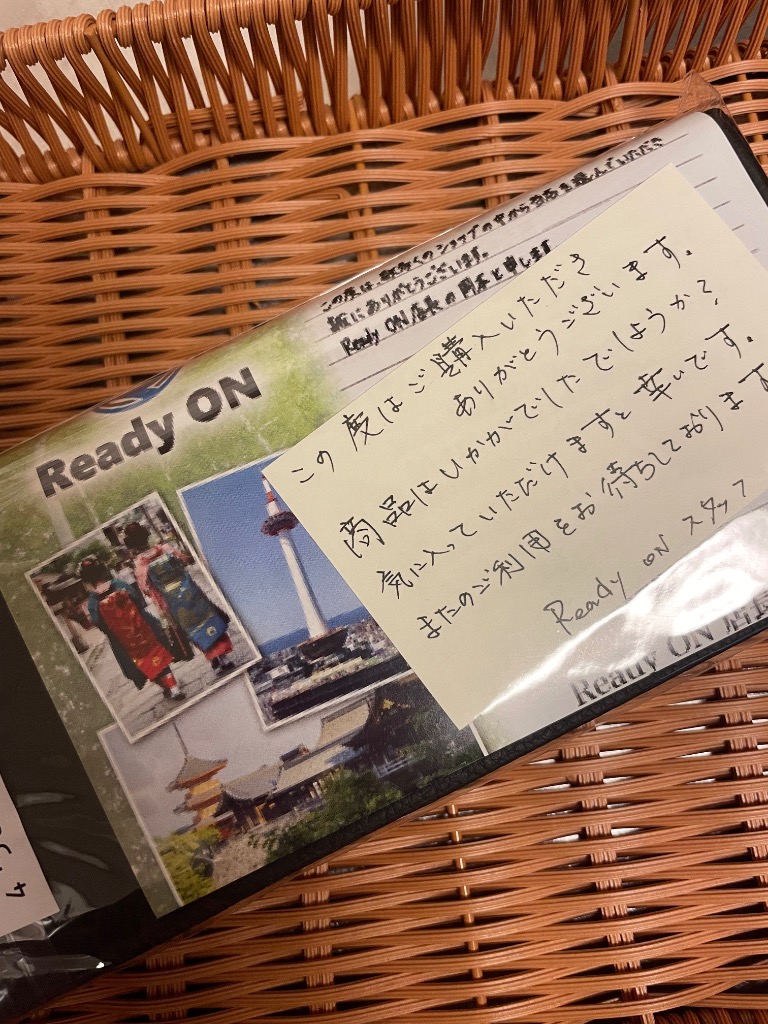 この度は、数多くのショップの中から当店を選んでいただき
誠にありがとうございます。
Ready ON店長の岡本と申します
Ready ON
この度はご購入いただき
ありがとうございます。
商品はいかがでしたでしょうか?
気に入っていただけますと幸いです。
またのご利用をお待ちしております
Ready ON スタッフ
Ready ON 店長